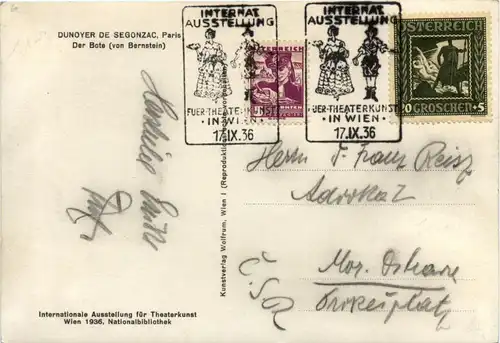 DUNOYER DE SEGONZAC, Paris
Der Bote (von Bernstein)
INTERNAT.
AUSSTELLUNG
FUER-THEATERKUNST
· IN WIEN ·
17.IX.36
INTERNAT.
AUSSTELLUNG
FUER-THEATERKUNST
· IN WIEN ·
17.IX.36
ÖSTERREICH
ÖSTERREICH
GROSCHEN+5
Herrn
Franz Reisz
Advokat
Mor. Ostrava
Č.S.R.
Kunstverlag Wolfrum, Wien I (Reproduktion
Internationale Ausstellung für Theaterkunst
Wien 1936, Nationalbibliothek